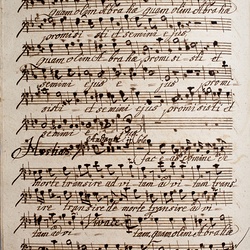 quam olim Abrahæ quam olim Abra hæ
promisi sti et semini ejus
quam olim Abra hæ promi si sti et
semini ejus promi
sisti et semini ejus promisisti et
semini ejus
Hostias
fac e as Domine de
morte transire ad vi tam ad vi tam trans
ire transire de morte transire ad vi
tam ad vi tam quam olim Abrahæ